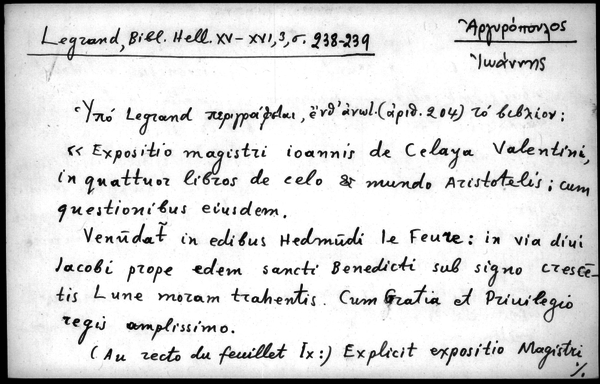 Legrand, Bibl. Hell. XV–XVI, 3, σ. 238-239
Ἀργυρόπουλος
Ἰωάννης
Ὑπό Legrand περιγράφεται, ἔνθ' ἀνωτ. (ἀριθ. 204) τό βιβλίον:
« Expositio magistri ioannis de Celaya Valentini,
in quattuor libros de celo & mundo Aristotelis; cum
questionibus eiusdem.
Venūdat̃ in edibus Hedmūdi le Feure: in via diui
Jacobi prope edem sancti Benedicti sub signo crescē-
tis Lune moram trahentis. Cum Gratia et Priuilegio
regis amplissimo.
(Au recto du feuillet Ix:) Explicit expositio Magistri
./.